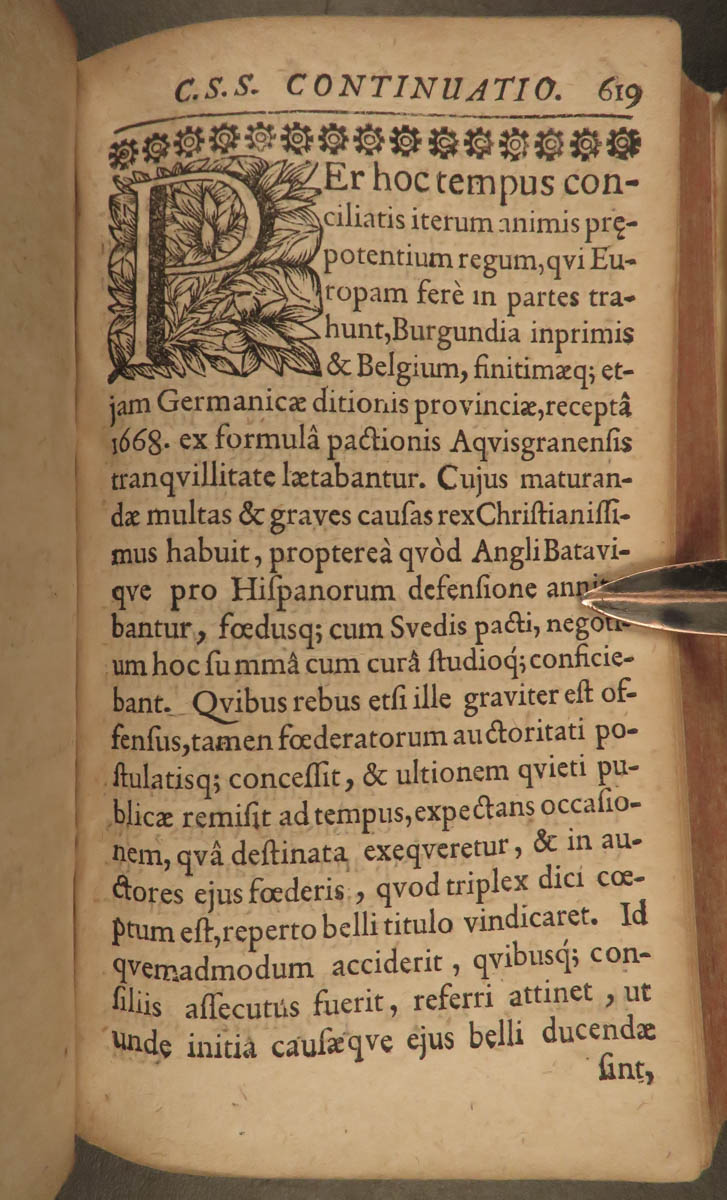 C.S.S. CONTINUATIO. 619
PEr hoc tempus con-
ciliatis iterum animis prę-
potentium regum, qvi Eu-
ropam ferè in partes tra-
hunt, Burgundia inprimis
& Belgium, finitimæq; et-
jam Germanicæ ditionis provinciæ, receptâ
1668. ex formulâ pactionis Aqvisgranenſis
tranqvillitate lætabantur. Cujus maturan-
dæ multas & graves cauſas rex Chriſtianiſſi-
mus habuit, proptereà qvòd Angli Batavi-
qve pro Hiſpanorum defenſione
bantur, fœdusq; cum Svedis pacti, negoti-
um hoc ſummâ cum curâ ſtudioq́; conficie-
bant. Qvibus rebus etſi ille graviter eſt of-
fenſus, tamen fœderatorum auctoritati po-
ſtulatisq; conceſſit, & ultionem qvieti pu-
blicæ remiſit ad tempus, expectans occaſio-
nem, qvâ deſtinata exeqveretur, & in au-
ctores ejus fœderis, qvod triplex dici cœ-
ptum eſt, reperto belli titulo vindicaret. Id
qvemadmodum acciderit, qvibusq́; con-
ſiliis aſſecutus fuerit, referri attinet, ut
unde initia cauſæqve ejus belli ducendæ
ſint,